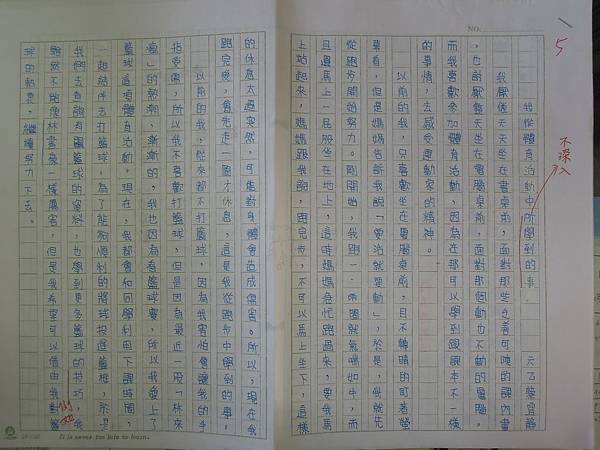 我從體育活動中所學到的事
我厭倦天天坐在書桌前,面對那些乏善可陳的課內書
,也討厭每天坐在電腦桌前,面對那個動也不動的電腦。
而我喜歡參加體育活動,因為在那可以學到跟課本不一樣
的事情,去感受運動家的精神。
以前的我,只喜歡坐在電腦桌前,目不轉睛的盯著螢
幕看,但是媽媽告訴我說「要活就要動」,於是,我就先
從跑步開始努力。剛開始,我跑一兩圈就氣喘如牛,而
且還馬上一屁股坐在地上,這時媽媽急忙跑過來,要我馬
上站起來,媽媽跟我說,跑完步,不可以馬上坐下,這樣
的休息太過突然,可能對身體會造成傷害。所以,現在我
跑完後,會先走一圈才休息,這是我從跑步中學到的事。
以前的我,從來都不打籃球,因為我害怕會讓我的手
指受傷,所以我不喜歡打籃球,但是因為最近一股「林來
瘋」的熱潮,漸漸的,我也因為看籃球賽,所以我愛上了
籃球這項體育活動。現在,我都會和同學利用下課時間,
一起結伴去打籃球,為了能夠順利的將球投進籃框,於是
我們去查詢有關籃球的資料,也學到更多籃球的技巧,我
雖然不能像林書豪一樣厲害,但是我希望可以藉由我對籃
球的熱衷,繼續努力下去。
NO.
15
不深入
It is never too late to learn.